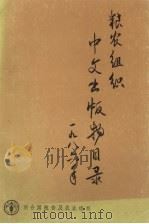 粮农组织
中文出版物目录
一九八五年
联合国粮食及农业组织